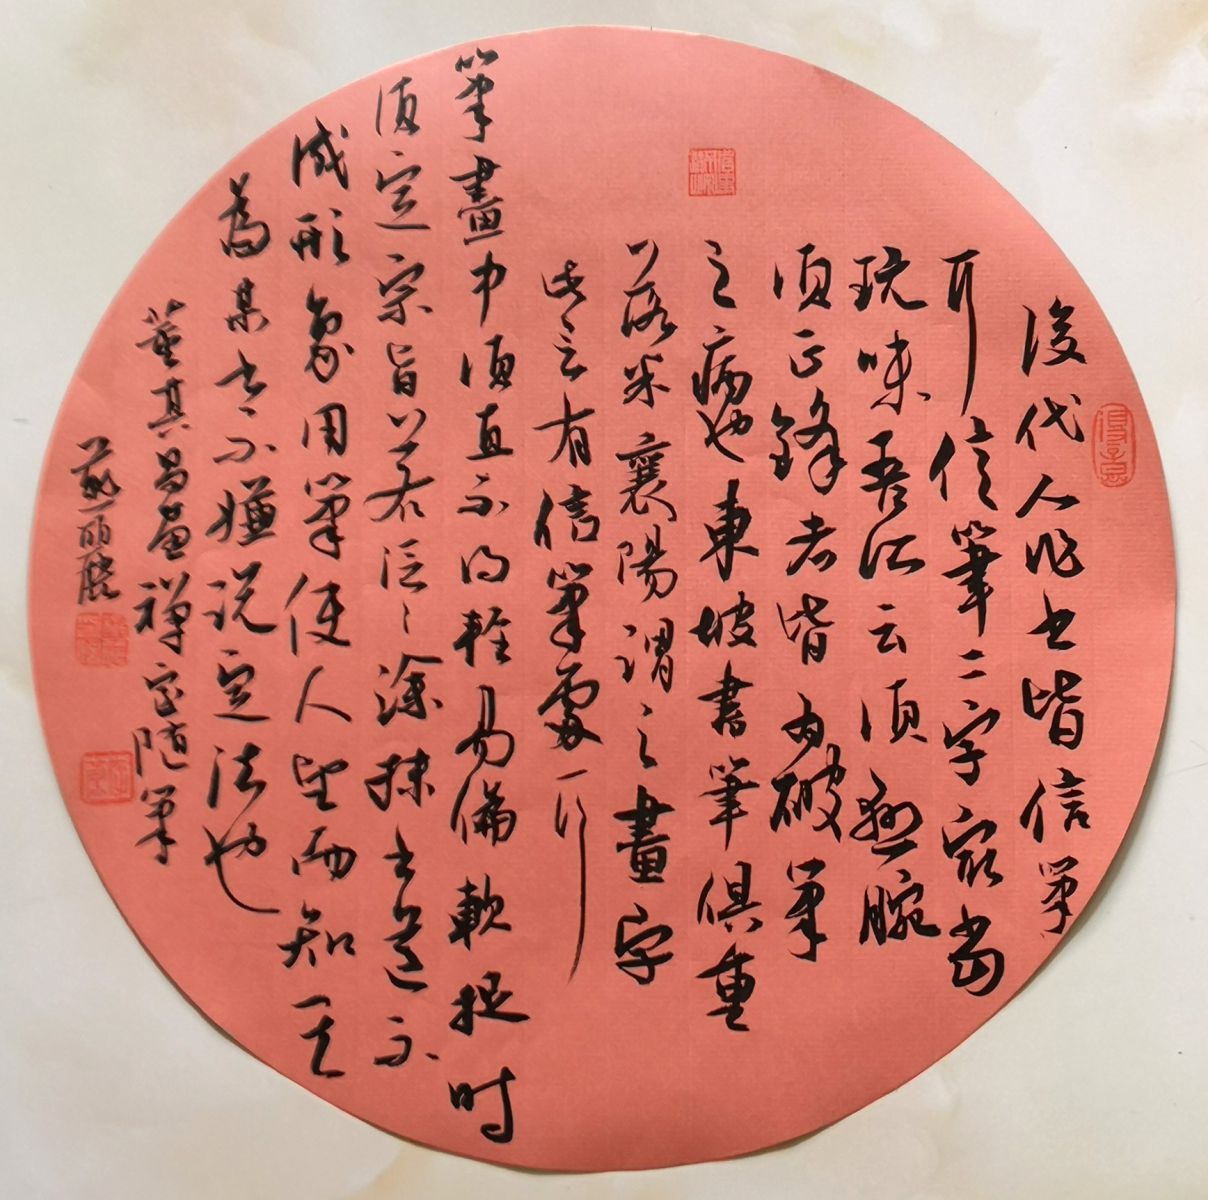 後代人作書皆信筆
耳信筆二字最當
玩味吾所云須懸腕
須正鋒者皆為破筆
之病也東坡書筆俱重
落米襄陽謂之畫字
此言有信筆處耳
筆畫中須直不得輕易偏軟捉時
須定宗旨若泛泛塗抹書道不
成形象用筆使人望而知其
為某書不嫌說定法也
董其昌畫禪室隨筆
丽